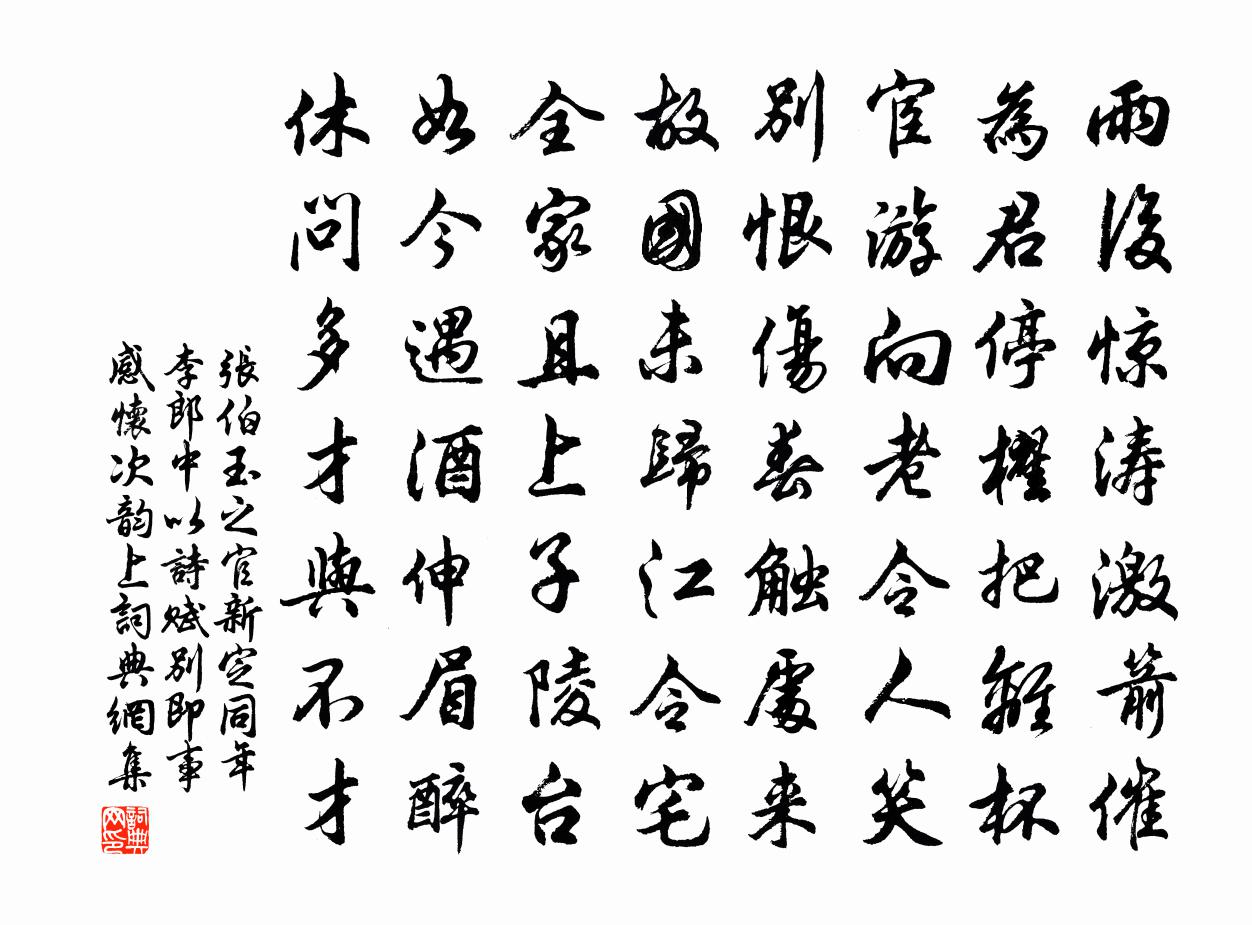 雨後惊涛激箭催
為君停櫂把離杯
宦游向老令人笑
別恨傷春触處来
故國未歸江令宅
全家且上子陵台
如今遇酒伸眉醉
休問多才與不才
張伯玉之官新定同年
李郎中以詩赋別即事
感懷次韵上詞典網集
詞典网印